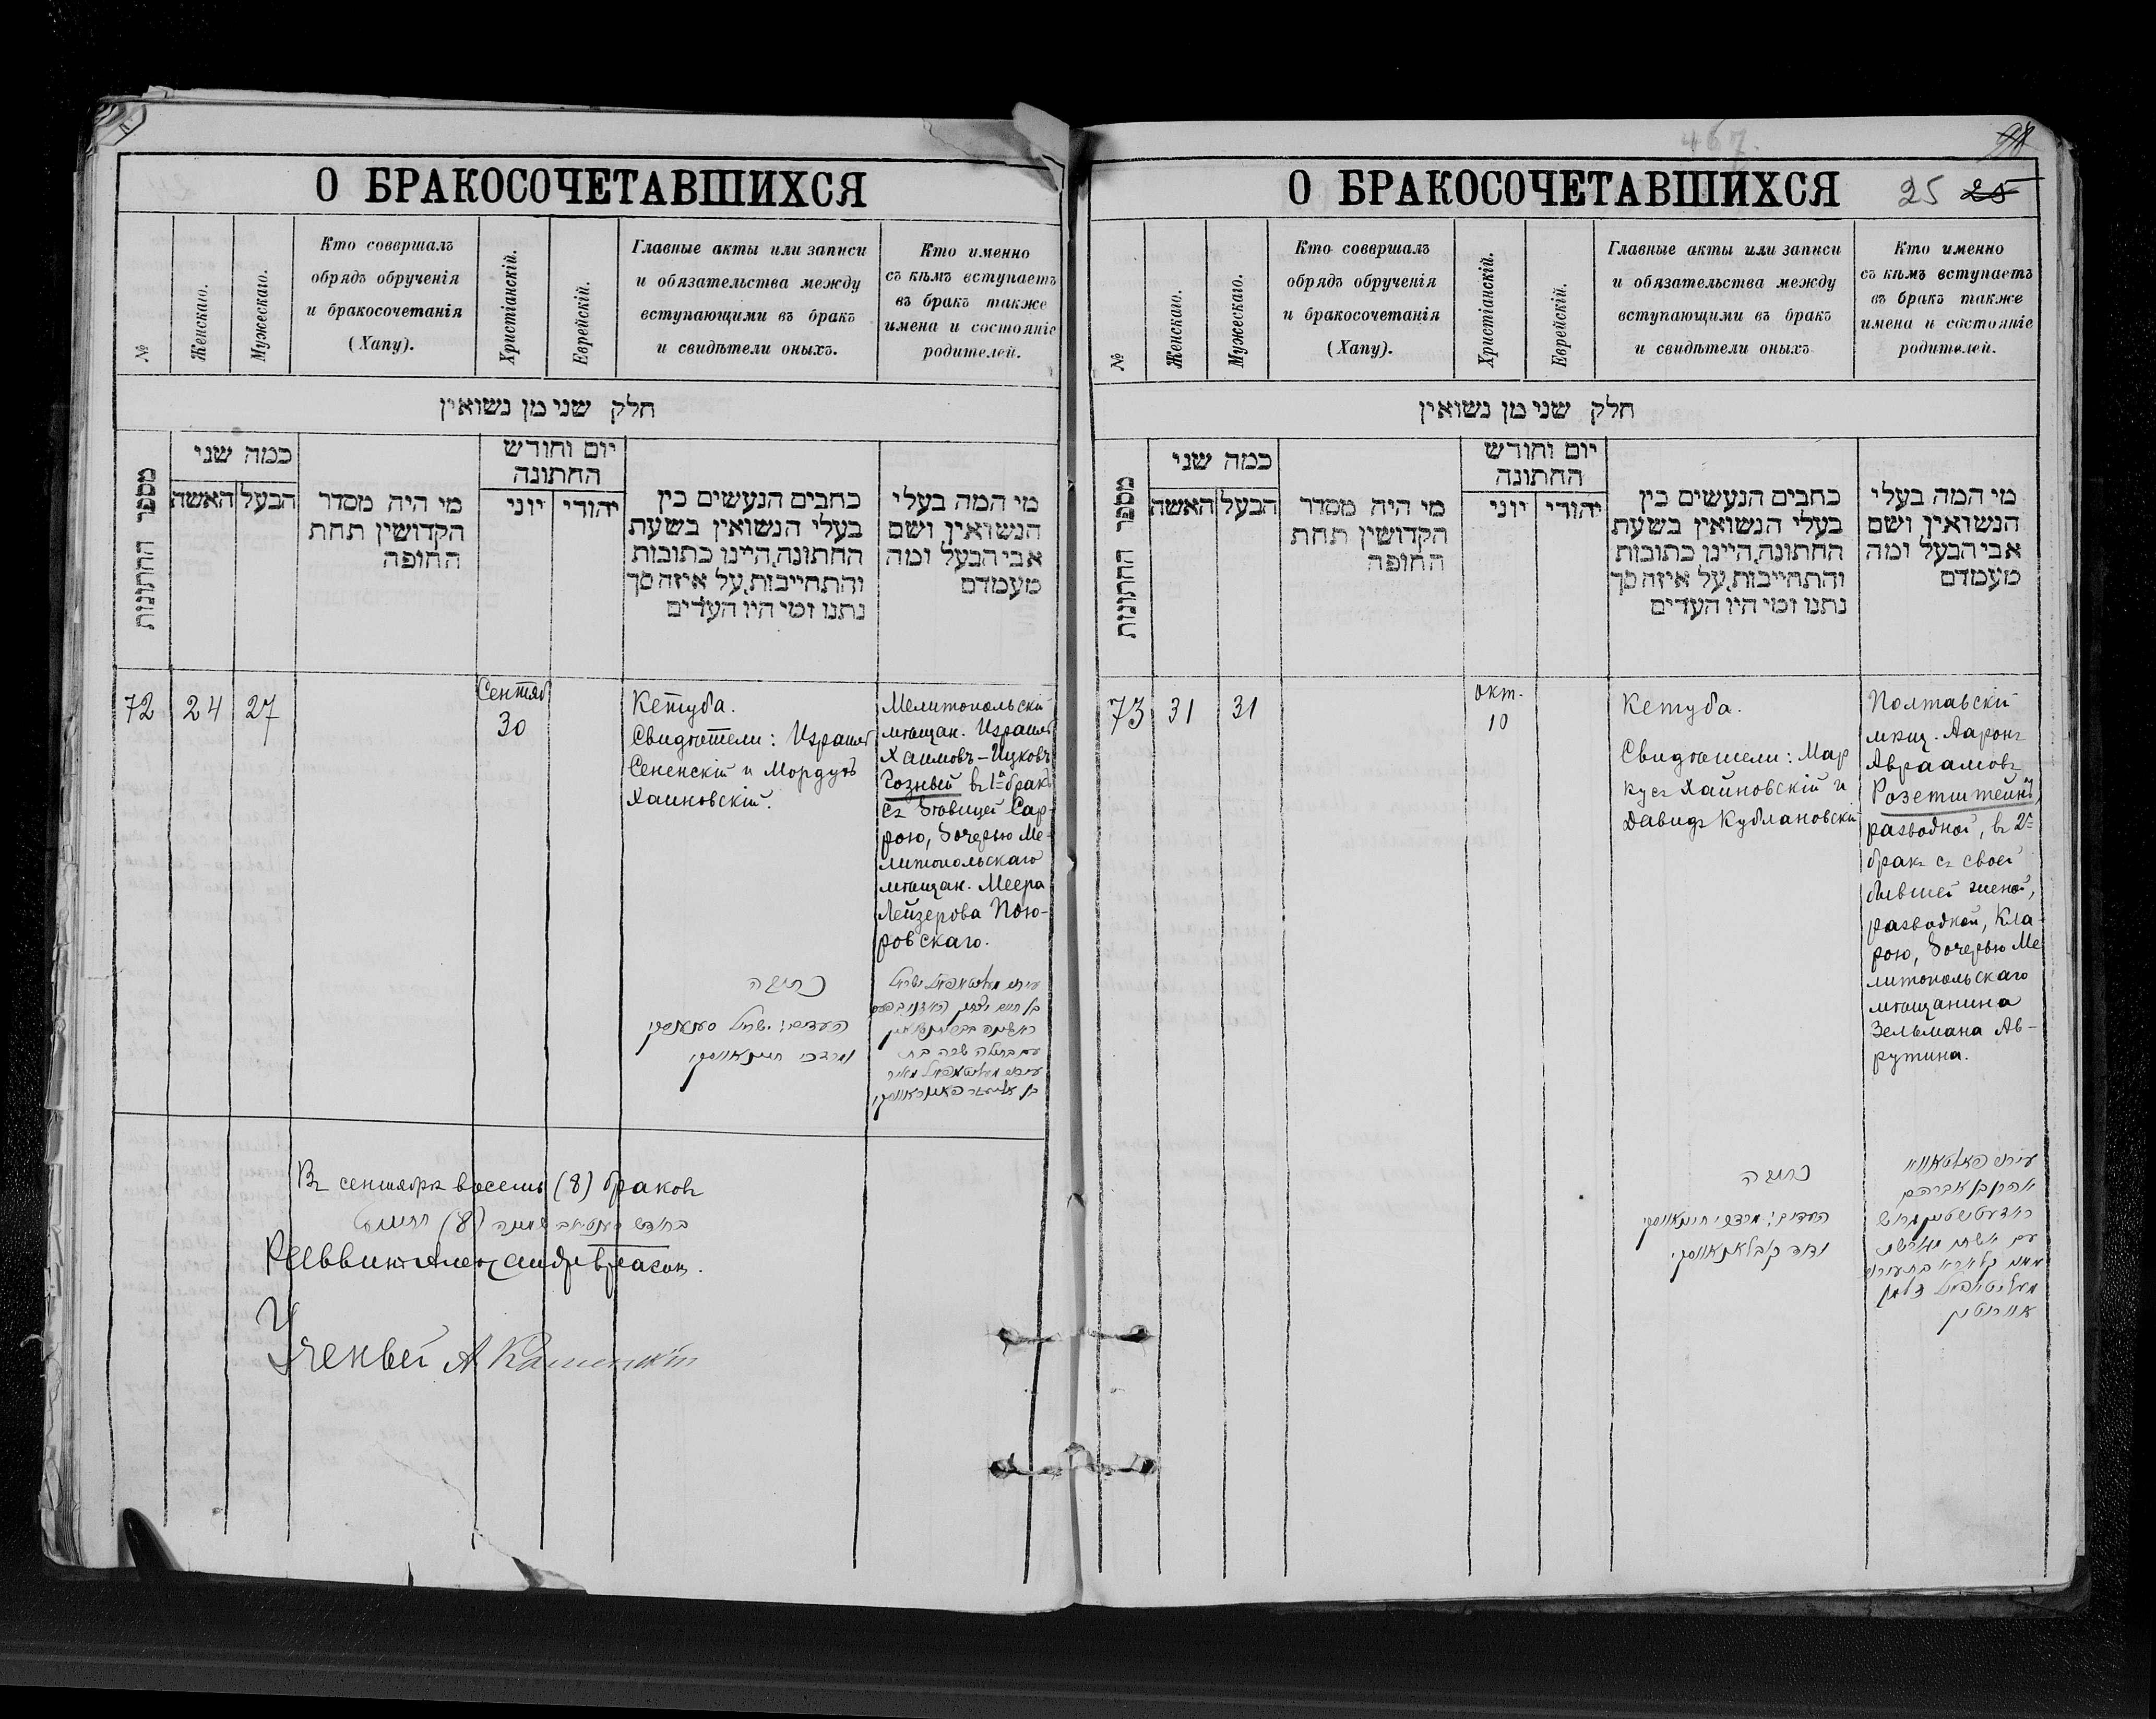 О БРАКОСОЧЕТАВШИХСЯ
№
Женскаго.
Мужескаго.
Кто совершалъ
обрядъ обрученія
и бракосочетанія
(Хапу).
Христіанскій.
Еврейскій.
Главные акты или записи
и обязательства между
вступающими въ бракъ
и свидѣтели оныхъ.
Кто именно
съ кѣмъ вступаетъ
въ бракъ также
имена и состояніе
родителей.
חלק שני מן נשואין
מספר החתונות
כמה שני
האשה
הבעל
מי היה מסדר
הקדושין תחת
החופה
יום וחודש
החתונה
יוני
יהודי
כתבים הנעשים בין
בעלי הנשואין בשעת
החתונה, היינו כתובות
והתחייבות, על איזה סך
נתנו ומי היו העדים
מי המה בעלי
הנשואין ושם
אבי הבעל ומה
מעמדם
72
24
27
Сентяб
30
Кетуба.
Свидѣтели: Израиль
Сененскій и Мордухъ
Хаиновскій.
Мелитопольскій
мѣщан. Израиль
Хаимовъ-Ицковъ
въ 1й бракъ
съ дѣвицей Сар-
рою, дочерью Ме-
литопольскаго
мѣщан. Меера
Лейзерова Пою-
ровскаго.
כתובה
העדים: ישראל סענענסקי
ומרדכי חיינאווסקי
Въ сентябрѣ восемь (8) браковъ
(8)
Раввинъ
Ученый А Каменскій
467.
О БРАКОСОЧЕТАВШИХСЯ
25 25
№
Женскаго.
Мужескаго.
Кто совершалъ
обрядъ обрученія
и бракосочетанія
(Хапу).
Христіанскій.
Еврейскій.
Главные акты или записи
и обязательства между
вступающими въ бракъ
и свидѣтели оныхъ
Кто именно
съ кѣмъ вступаетъ
въ бракъ также
имена и состояніе
родителей.
חלק שני מן נשואין
מספר החתונות
כמה שני
האשה
הבעל
מי היה מסדר
הקדושין תחת
החופה
יום וחודש
החתונה
יוני
יהודי
כתבים הנעשים בין
בעלי הנשואין בשעת
החתונה, היינו כתובות
והתחייבות, על איזה סך
נתנו ומי היו העדים
מי המה בעלי
הנשואין ושם
אבי הבעל ומה
מעמדם
73
31
31
окт.
10
Кетуба.
Свидѣтели: Мар
кусъ Хаиновскій и
Давидъ Кублановскій
Полтавскій
мѣщ. Ааронъ
Авраамовъ
Розетштейнъ,
разводной, въ 2й
бракъ съ своей
бывшей женой,
разводкой, Кла-
рою, дочерью Ме
литопольскаго
мѣщанина
Зельмана Ав-
рутина.
כתובה
העדים: מרדכי חיינאווסקי
ודוד קובלאנאווסקי
אהרן בן אברהם